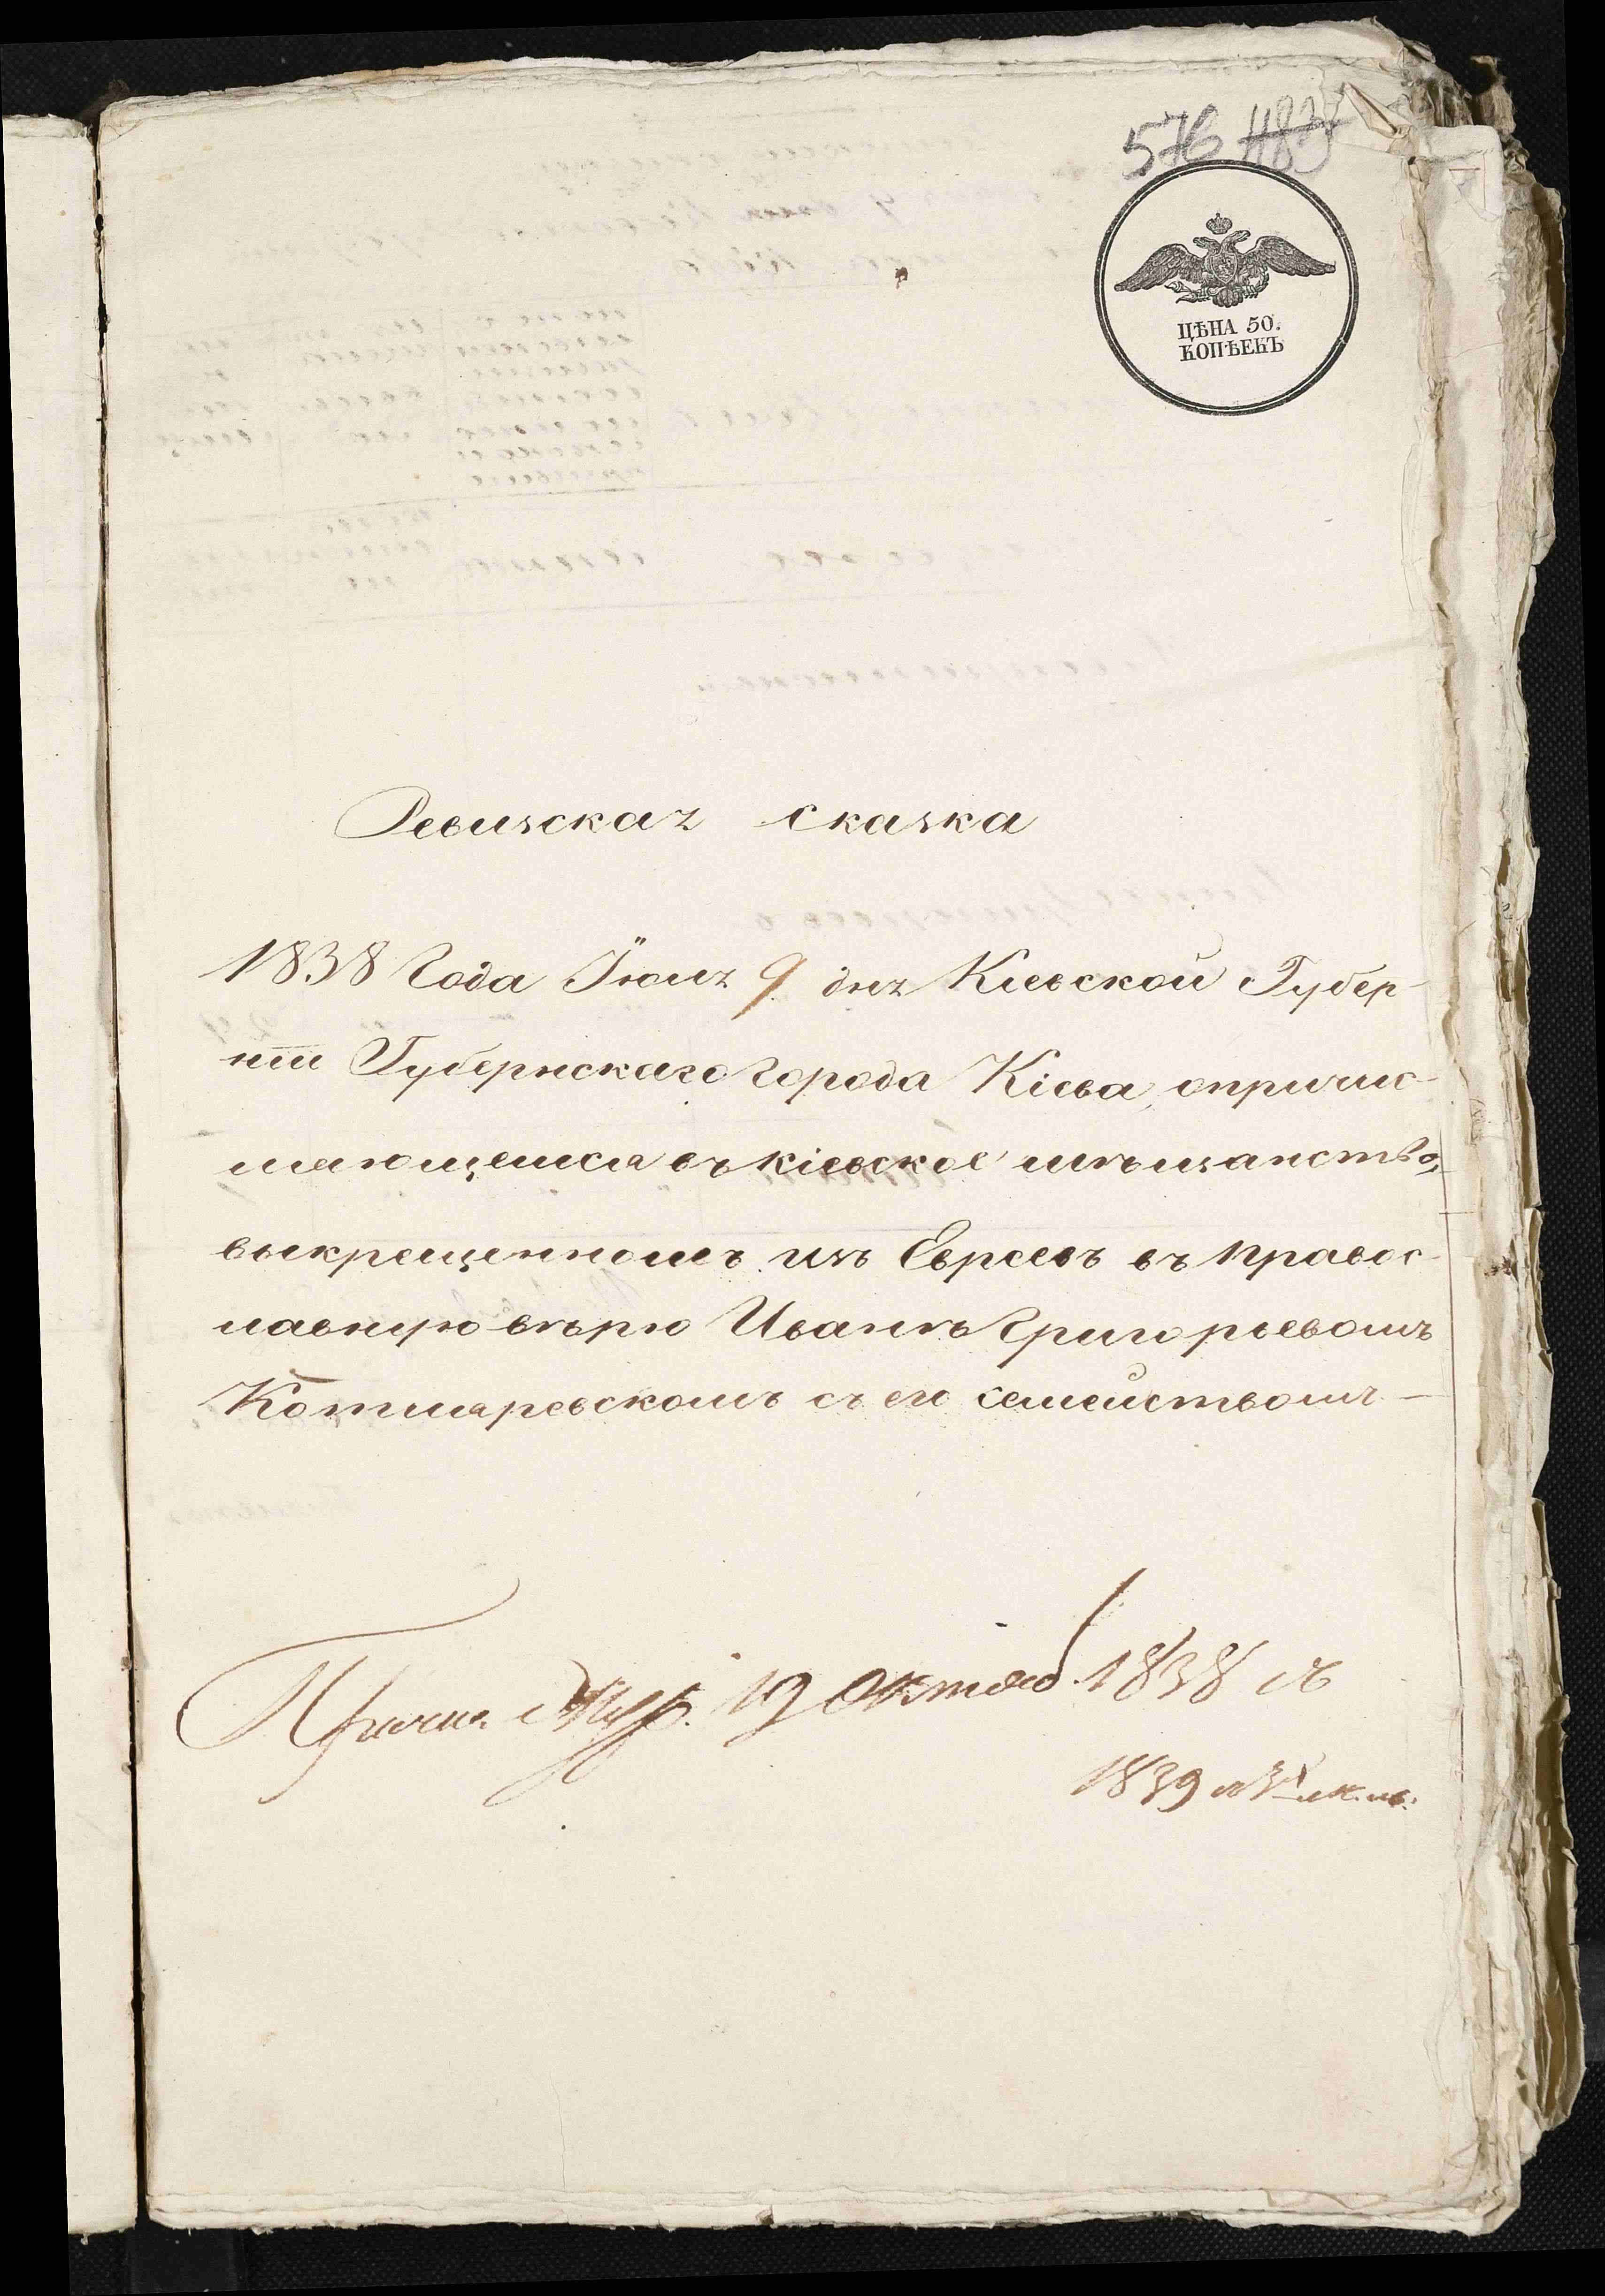 576 483
ЦѢНА 50.
КОПѢЕКЪ
Ревизская сказка
1838 Года Іюля 9 дня Кіевской Губер-
ніи Губернскаго города Кіева, опричис-
ляющемся въ кіевское мѣщанство,
выкрещенномъ изъ Евреевъ въ правос-
лавную вѣрю Иванѣ Григорьевомъ
Котляревскомъ съ его семействомъ —
19 Октяб. 1838 съ
1839